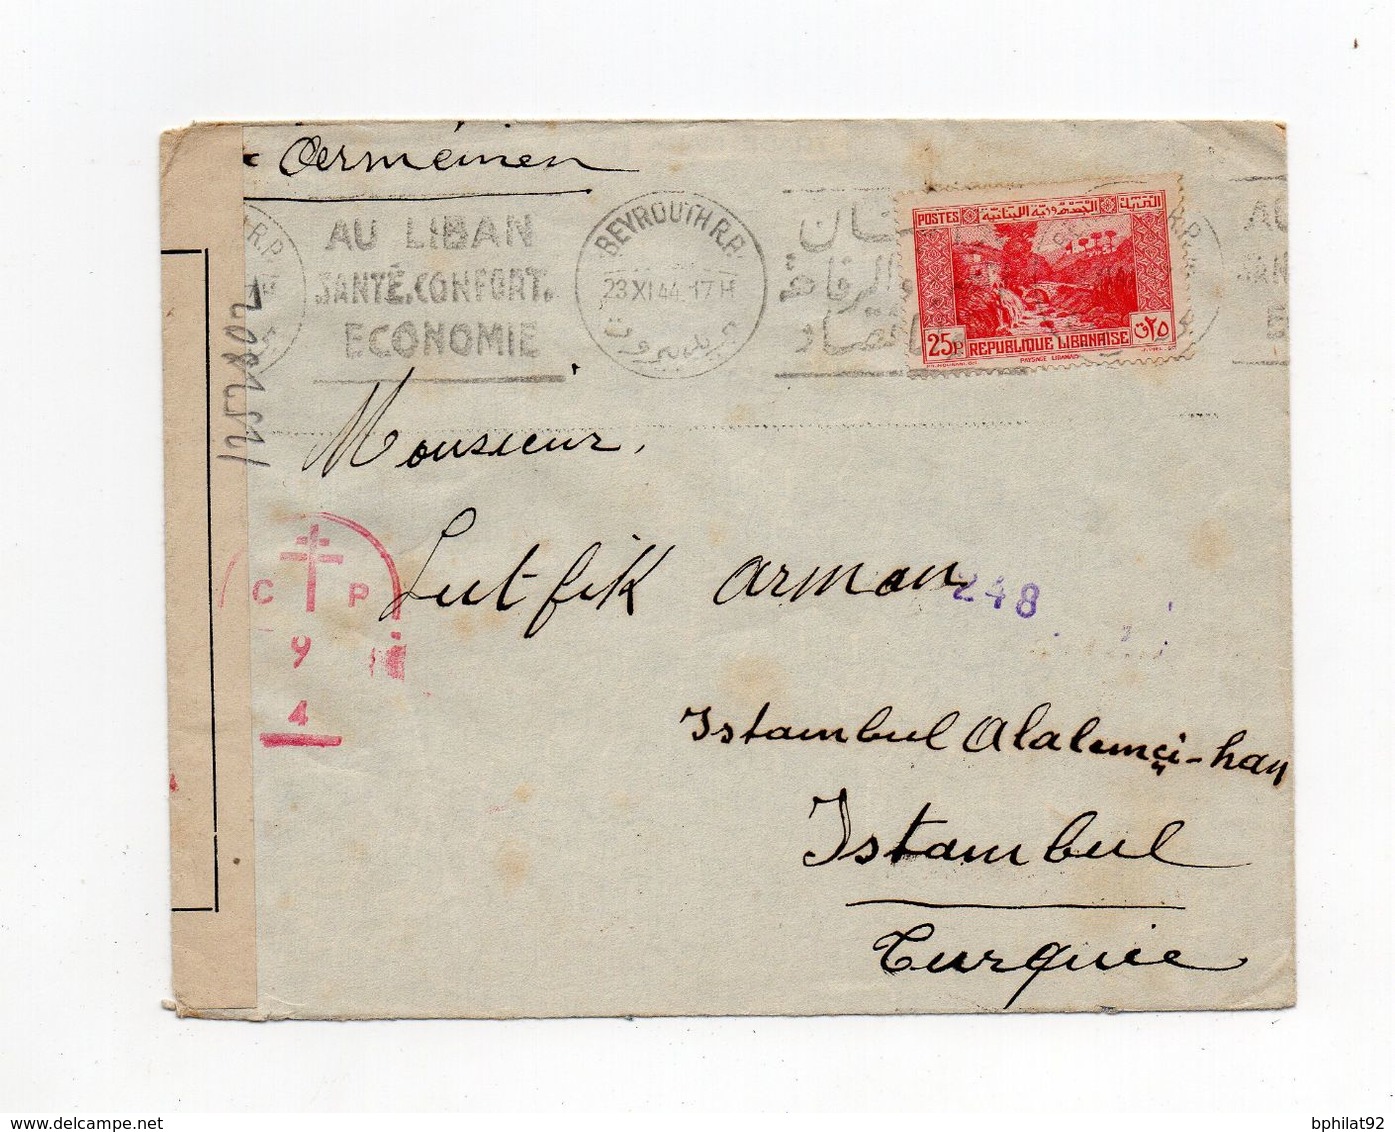 AU LIBAN
SANTÉ, CONFORT,
ECONOMIE
BEYROUTH R.P.
23 XI 44 · 17 H
بيروت
والرفاهة
POSTES
الجمهورية اللبنانية
25P REPUBLIQUE LIBANAISE ٢٥ق
PAYSAGE LIBANAIS
R.P.
R.P.
AU
SAN
1252802
Monsieur,
Lutfik arman
248
C P
94
Istambul Alalemçi-han
Istambul
Turquie
delcampe.net
bphilat92